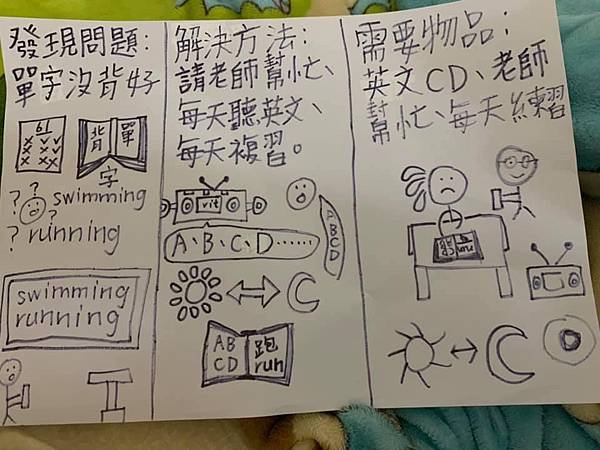 發現問題：
單字沒背好
61
背單
字
? ?
? ? swimming
? running
swimming
running
解決方法：
請老師幫忙、
每天聽英文、
每天複習。
A、B、C、D……
ABCD
AB
CD
跑
run
需要物品：
英文CD、老師
幫忙、每天練習